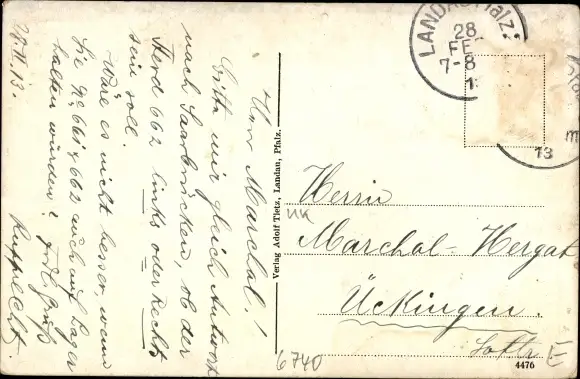 28.II.13.
Herr Marchal!
Bitte mir gleich Antwort
nach Saarbrücken, ob der
Herd 662 links oder Rechts
sein soll.
Wäre es nicht besser, wenn
Sie No 661 & 662 auch auf Lager
halten würden?
Gruß
Rupprecht
Verlag Adolf Tietz, Landau, Pfalz.
LANDAU Pfalz.
28
FE
7-8
13
Herrn
Marchal-Hergat
Ückingen.
Lothr
6740
E
4476